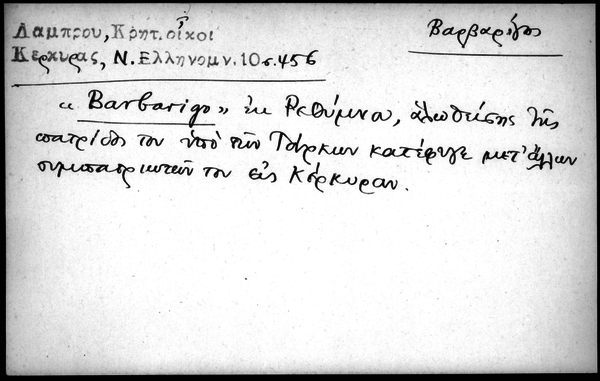 Λαμπρου, Κρητ. οἶκοι
Κερκυρας, Ν. Ελληνομν. 10 σ. 456
Βαρβαρίγος
« Barbarigo » ἐκ Ρεθύμνου, ἁλωθείσης τῆς
πατρίδος του ὑπὸ τῶν Τούρκων κατέφυγε μετ' ἄλλων
συμπατριωτῶν του εἰς Κέρκυραν.